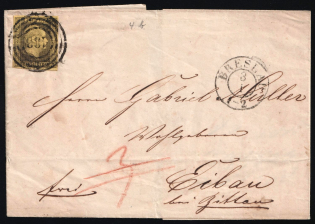 4 A
BRESLAU
3
2
Herrn Gabriel Müller
Wohlgeboren
Eibau
frei
bei Zittau